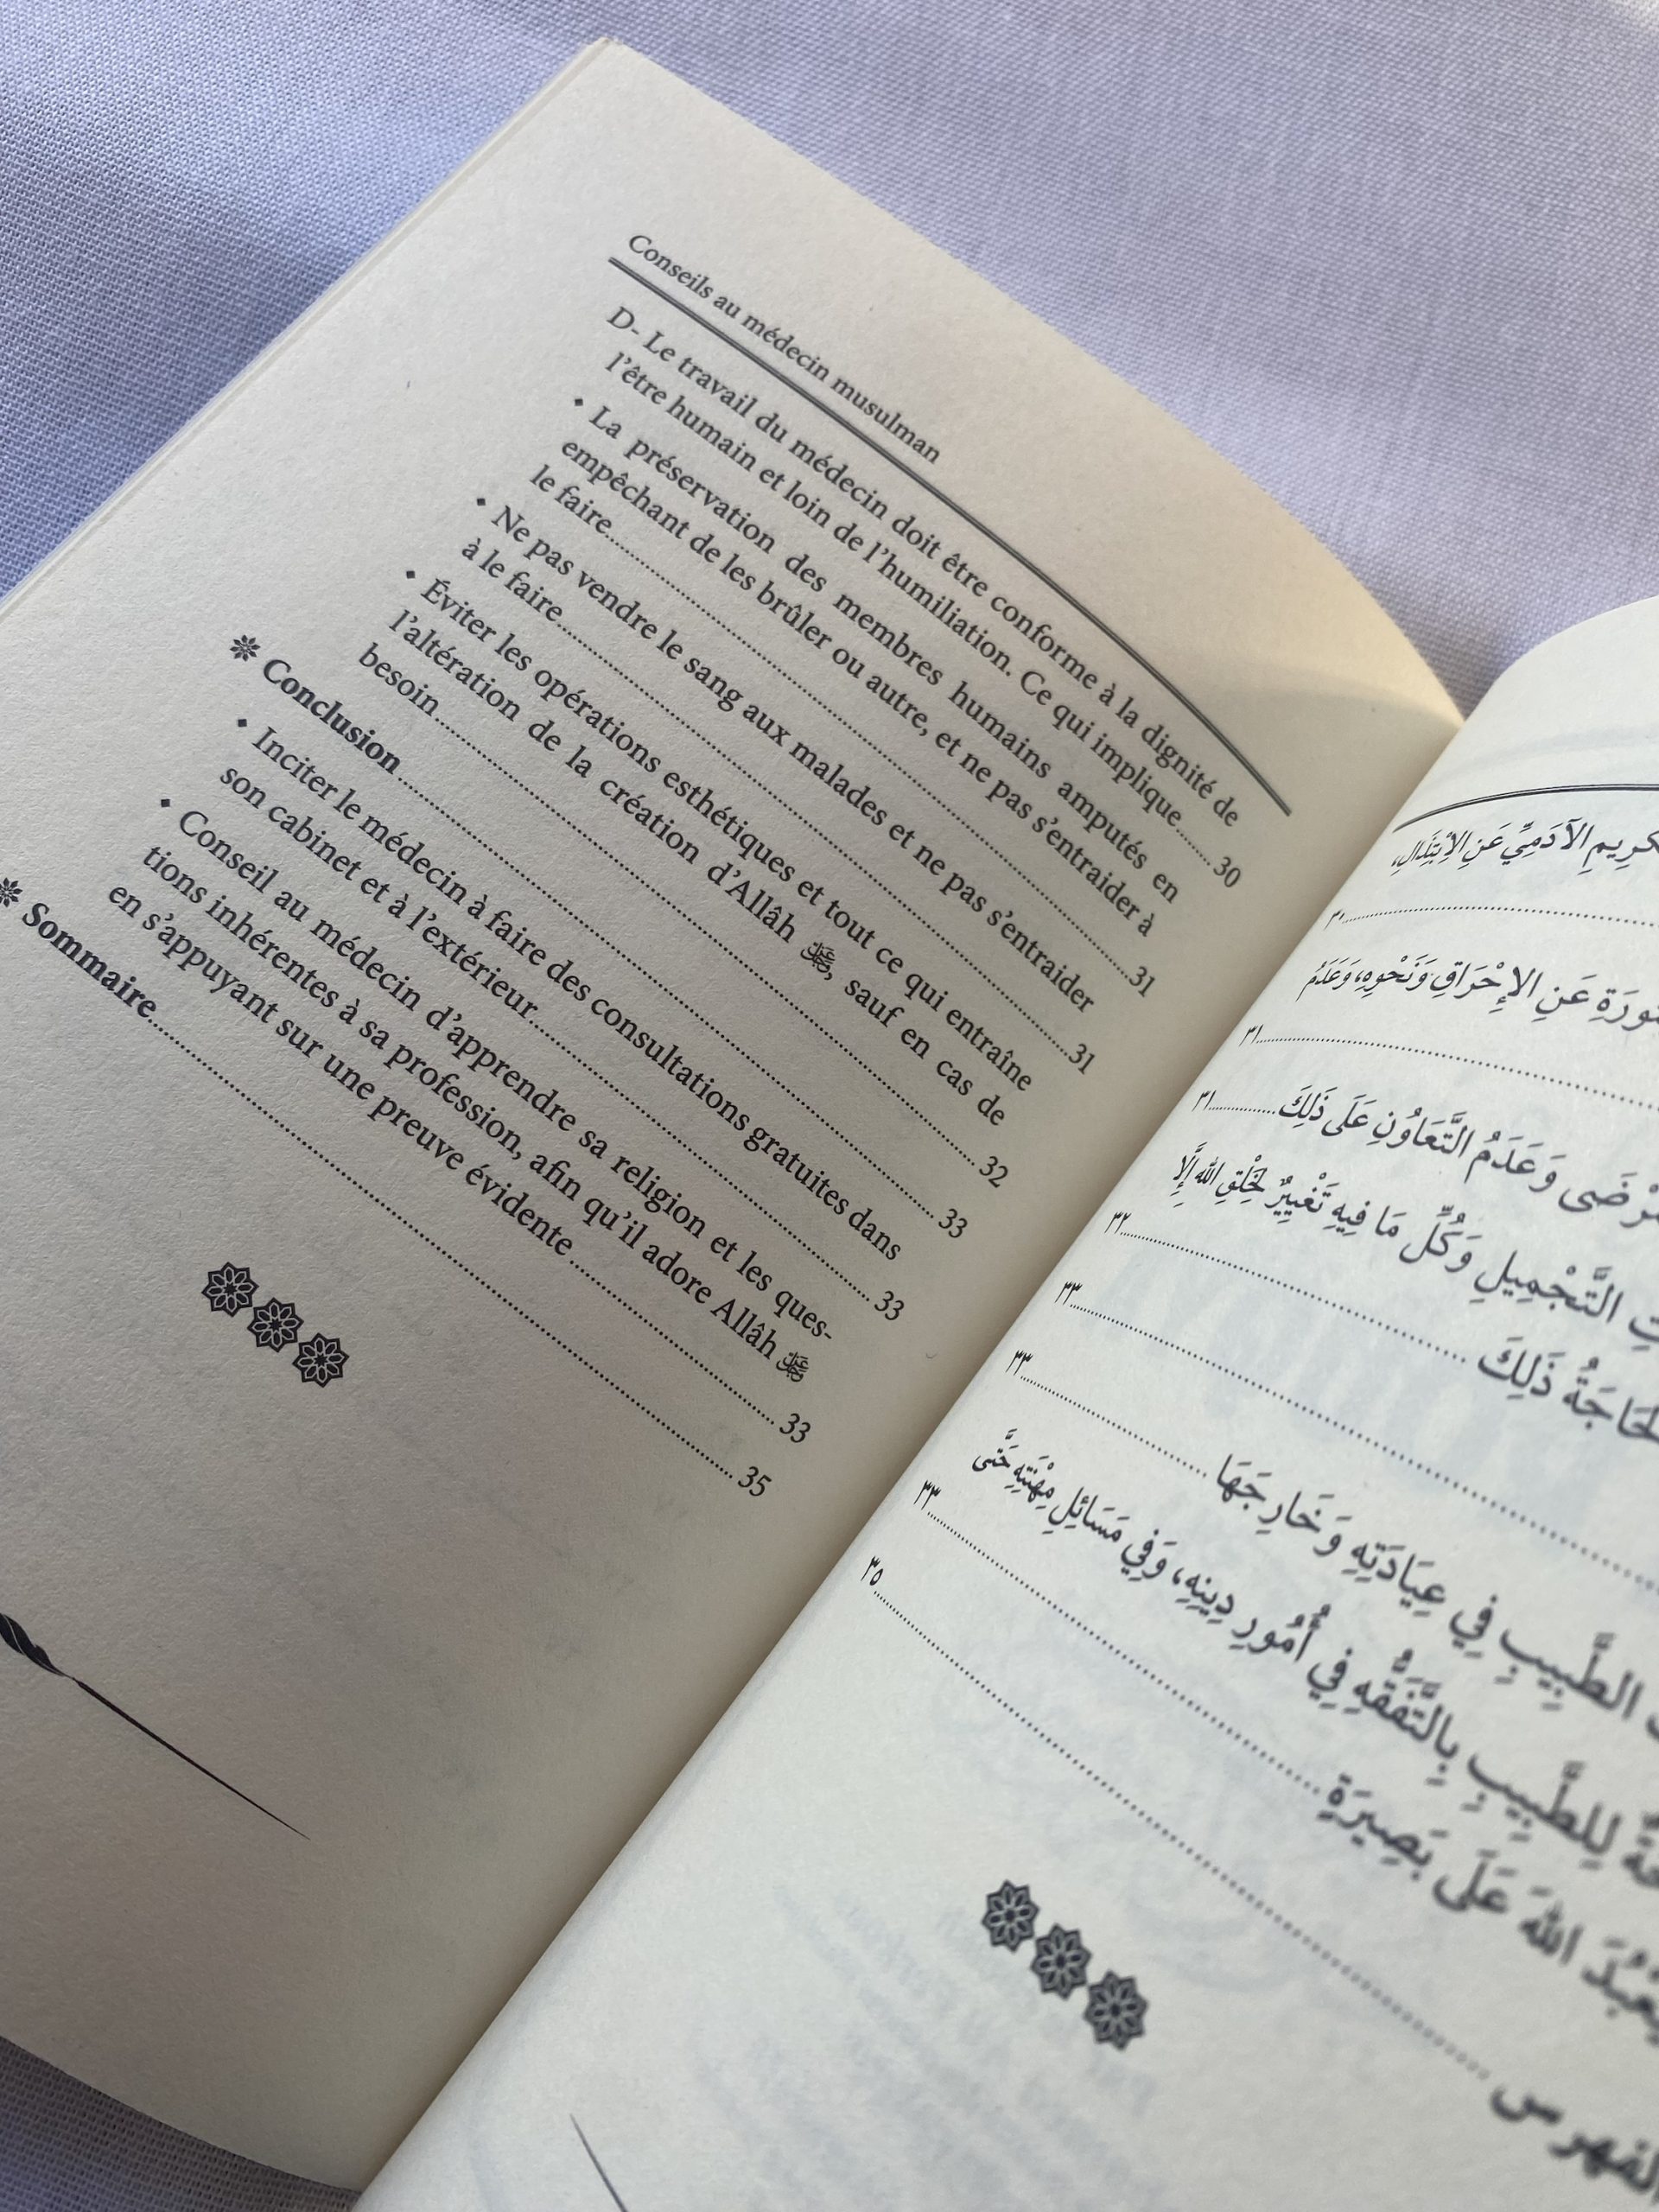 Conseils au médecin musulman
D- Le travail du médecin doit être conforme à la dignité de
l'être humain et loin de l'humiliation. Ce qui implique...... 30
• La préservation des membres humains amputés en
empêchant de les brûler ou autre, et ne pas s'entraider à
le faire............ 31
• Ne pas vendre le sang aux malades et ne pas s'entraider
à le faire............ 31
• Éviter les opérations esthétiques et tout ce qui entraîne
l'altération de la création d'Allâh ﷻ, sauf en cas de
besoin............ 32
Conclusion............ 33
• Inciter le médecin à faire des consultations gratuites dans
son cabinet et à l'extérieur............ 33
• Conseil au médecin d'apprendre sa religion et les ques-
tions inhérentes à sa profession, afin qu'il adore Allâh ﷻ
en s'appuyant sur une preuve évidente ............ 33
Sommaire............ 35
الآدَمِيِّ عَنِ الاِبْتِذَالِ،
٣٠
عَنِ الإِحْرَاقِ وَنَحْوِهِ، وَعَدَمُ
٣١
وَعَدَمُ التَّعَاوُنِ عَلَى ذَلِكَ............٣١
التَّجْمِيلِ وَكُلِّ مَا فِيهِ تَغْيِيرٌ لِخَلْقِ اللهِ إِلَّا
ذَلِكَ ............٣٢
٣٣
الطَّبِيبِ فِي عِيَادَتِهِ وَخَارِجَهَا ............٣٣
لِلطَّبِيبِ بِالتَّفَقُّهِ فِي أُمُورِ دِينِهِ، وَفِي مَسَائِلِ مِهْنَتِهِ حَتَّى
اللهَ عَلَى بَصِيرَةٍ............٣٣
الفهرس ............٣٥